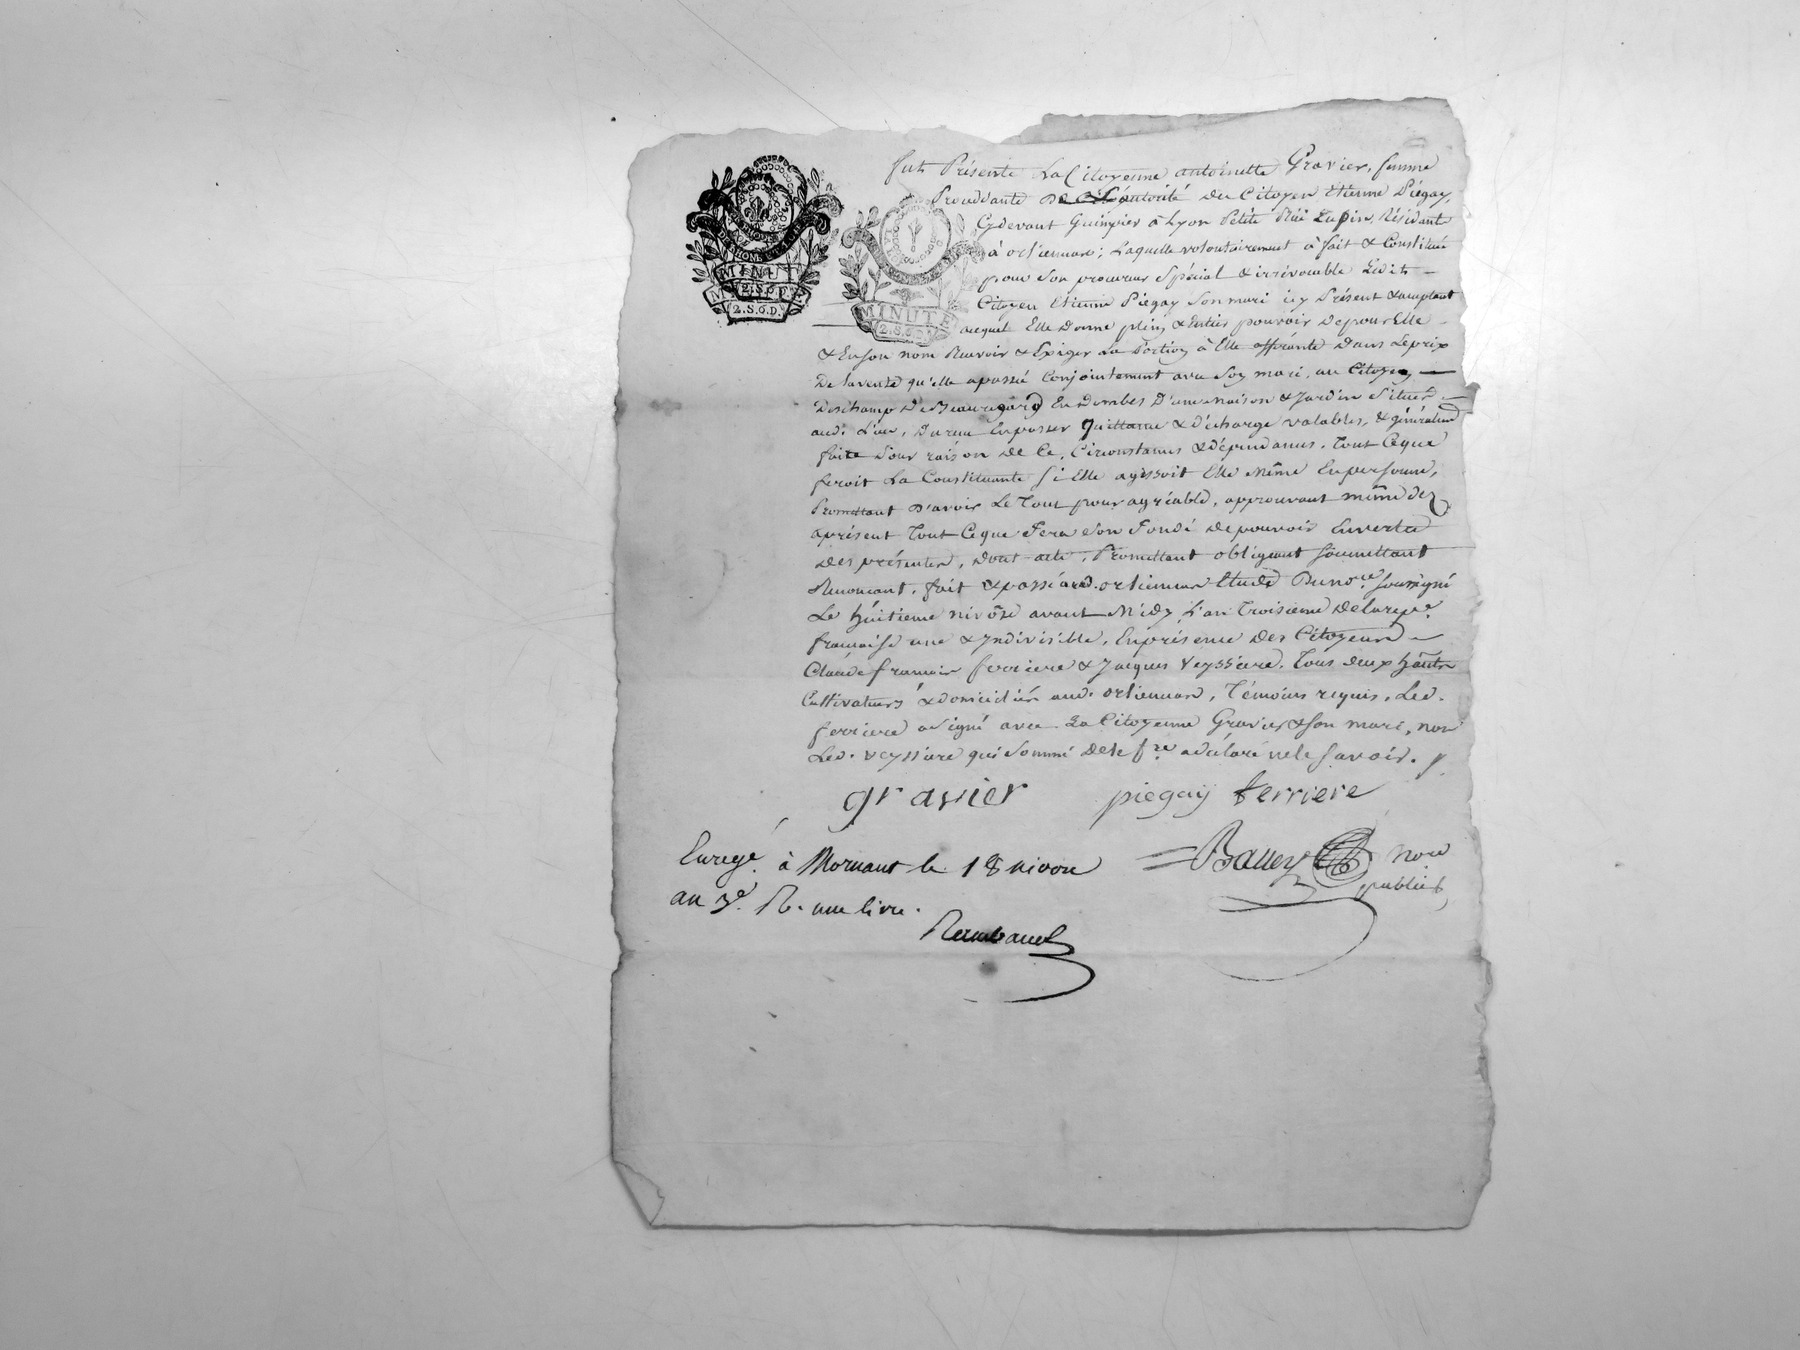 MINUTE
2.S.6.D.
MINUTE
2.S.6.D.
MINUTE
2.S.6.D.
fut Présente La Citoyenne antoinette Gravier, femme
Proceddante De L'autorité du Citoyen Etienne Piegay,
Cydevant Guimpier à Lyon Petite Rüe Lupin, Résidante
à orlienas ; Laquelle volontairement à fait & Constitué
pour Son procureur Spécial & irrévocable Ledit
Citoyen Etienne Piegay Son mari icy Présent & acceptant
auquel Elle Donne plein & Entier pouvoir De pour Elle
& En son nom Recevoir & Exiger La Portion à Elle afférante Dans Le prix
De La vente qu'elle a passée Conjointement avec Son mari, au Citoyen
Deschamp De Beauregard En dombes D'une Maison & Jardin Situés
aud. Lieu, Du reçu En passer Quittance & décharge valables, &
faire Pour raison de Ce, Circonstances & dépendances, Tout Ceque
feroit La Constituante Si Elle agissoit Elle Même En personne,
Promettant D'avoir Le Tout pour agréable, approuvant même dez
aprésent Tout Ceque Fera Son Fondé De pouvoir En vertu
Des présentes, Dont acte, Promettant obligeant Soumettant
Renoncant, fait & passé aud. orlienas Etude Du noʳᵉ Soussigné
Le huitieme nivôse avant Midy, L'an Troisieme De La repᵉ
francaise une & Indivisible, En présence Des Citoyens
Claude francois ferriere & Jacques Veyssiere, Tous deux
Cultivateurs & domiciliés aud. orlienas, Témoins requis, Led.
ferriere a Signé avec La Citoyenne Gravier & Son mari, non
Led. veyssiere qui Sommé De Le fʳᵉ a déclaré ne le Savoir.
gravier piegay ferriere
Enregᵉ à Mornant le 18 nivose
Balley Noʳᵉ
public
an 3ᵉ. R. une livre.